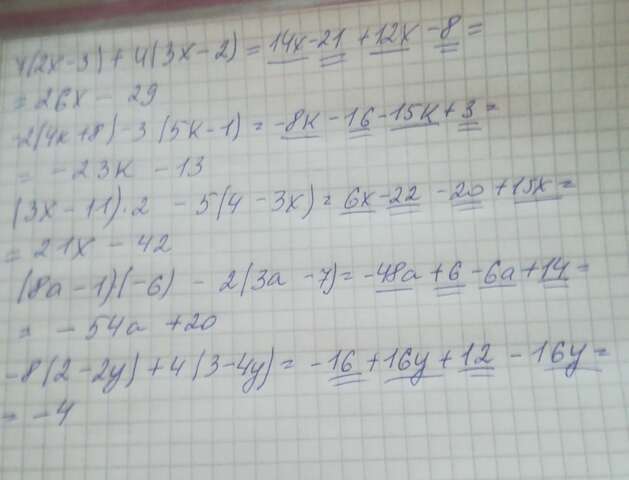 7(2x-3)+4(3x-2)=14x-21+12x-8=
=26x-29
-2(4k+8)-3(5k-1)=-8k-16-15k+3=
=-23k-13
(3x-11)·2-5(4-3x)=6x-22-20+15x=
=21x-42
(8a-1)(-6)-2(3a-7)=-48a+6-6a+14=
=-54a+20
-8(2-2y)+4(3-4y)=-16+16y+12-16y=
=-4